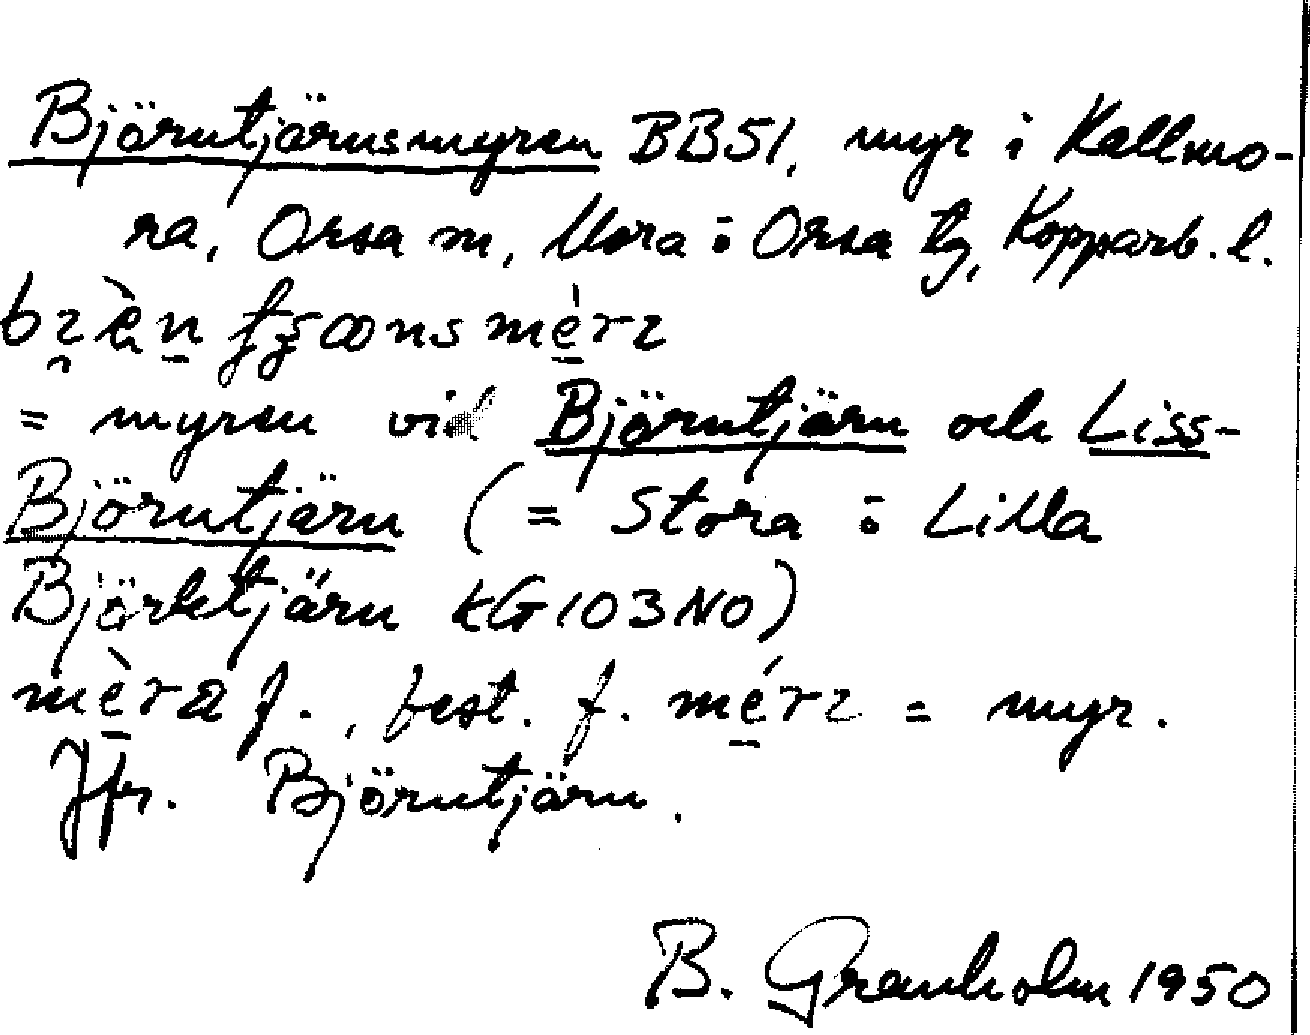 Björntjärnsmyren BB51, myr i Kallmo-
ra, Orsa sn, Mora o Orsa tg, Kopparb. l.
mèrz
= myren vid Björntjärn och Liss-
Björntjärn (= Stora o Lilla
Björktjärn KG103NO)
mèra f., best. f. mérz = myr.
Jfr. Björntjärn.
B. Granholm 1950